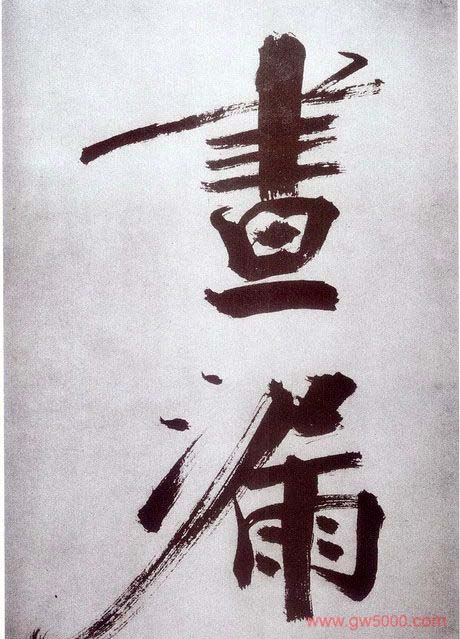 晝漏
www.gw5000.com